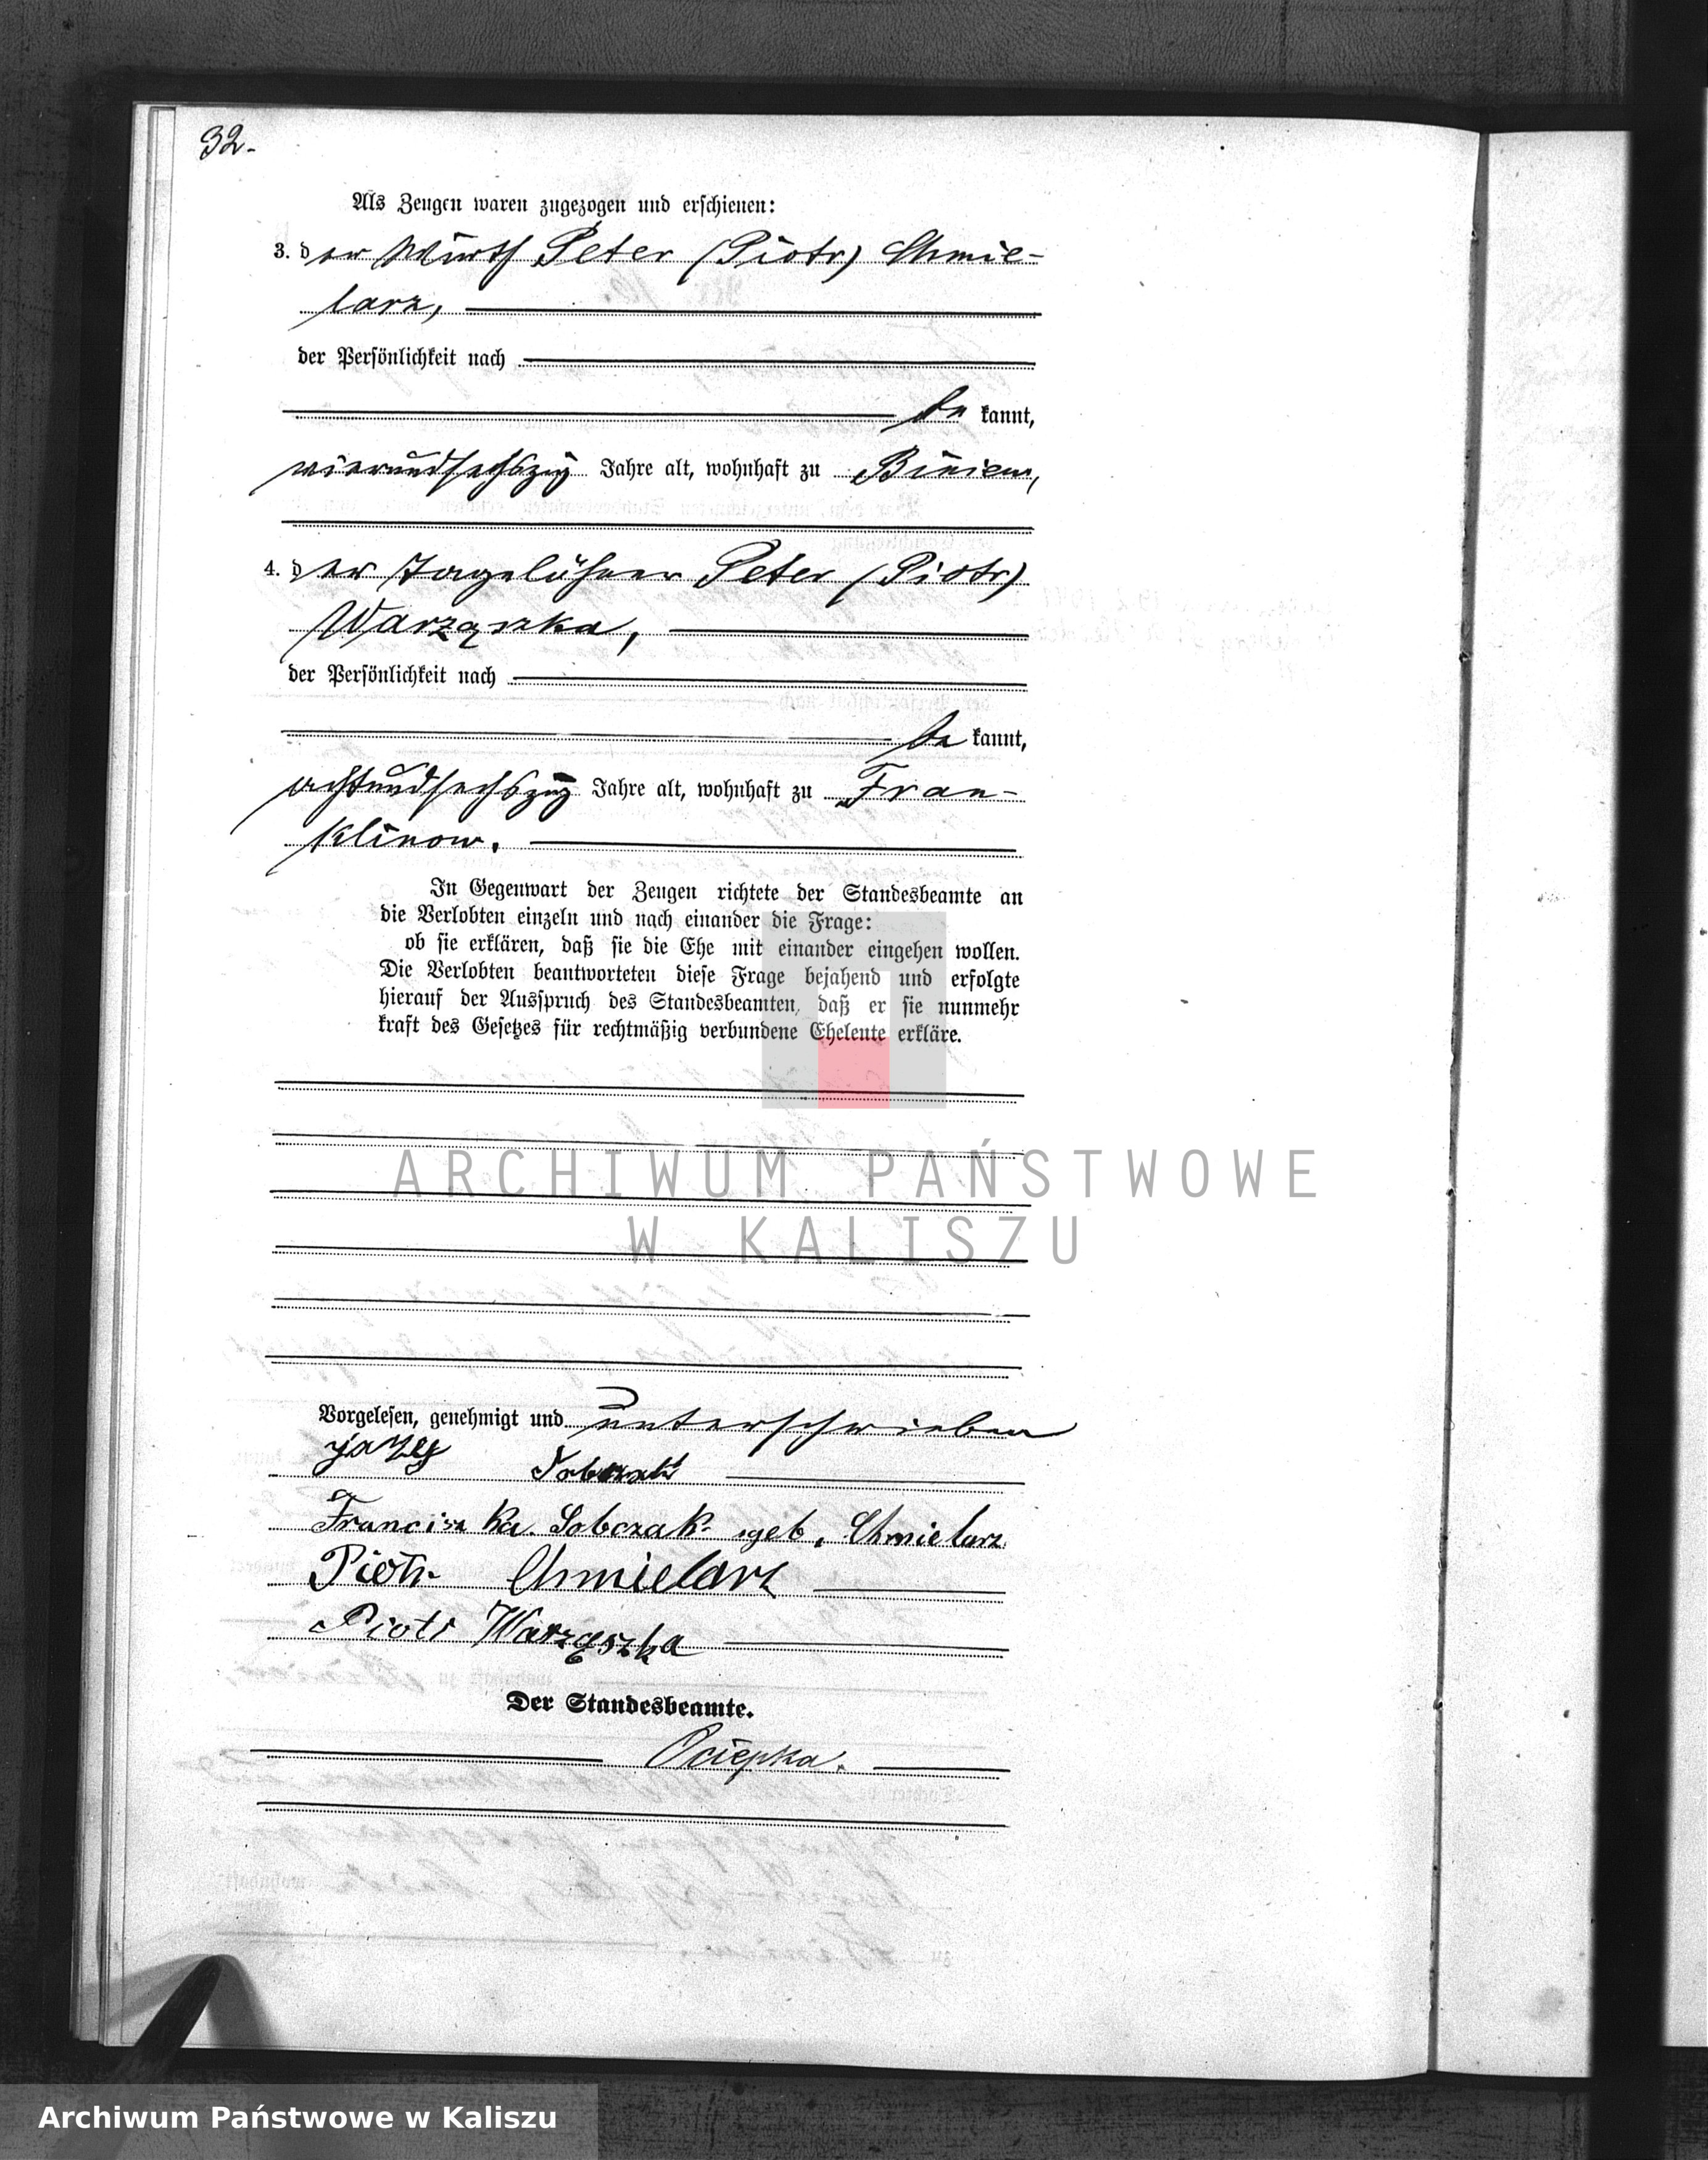 32.
Als Zeugen waren zugezogen und erschienen:
3. der Wirth Peter (Piotr) Chmie-
larz,
der Persönlichkeit nach
be kannt,
vierundsechszig Jahre alt, wohnhaft zu Biniew,
4. der Tagelöhner Peter (Piotr)
Warząszka,
der Persönlichkeit nach
be kannt,
achtundsechszig Jahre alt, wohnhaft zu Fran-
klinow.
In Gegenwart der Zeugen richtete der Standesbeamte an
die Verlobten einzeln und nach einander die Frage:
ob sie erklären, daß sie die Ehe mit einander eingehen wollen.
Die Verlobten beantworteten diese Frage bejahend und erfolgte
hierauf der Ausspruch des Standesbeamten, daß er sie nunmehr
kraft des Gesetzes für rechtmäßig verbundene Eheleute erkläre.
ARCHIWUM PAŃSTWOWE
W KALISZU
Vorgelesen, genehmigt und unterschrieben
Sobczak
Franciszka Sobczak geb. Chmielarz
Piotr Chmielarz
Piotr Warząszka
Der Standesbeamte.
Ociepka.
Archiwum Państwowe w Kaliszu